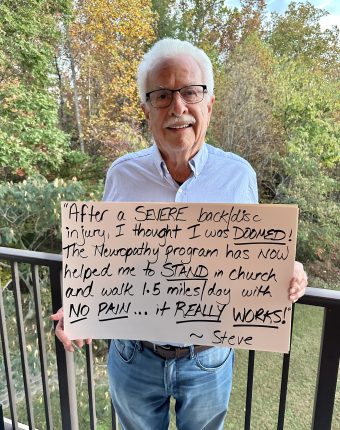 "After a SEVERE back/disc
injury, I thought I was DOOMED!
The Neuropathy program has NOW
helped me to STAND in church
and walk 1.5 miles/day with
NO PAIN... it REALLY WORKS!"
~ Steve